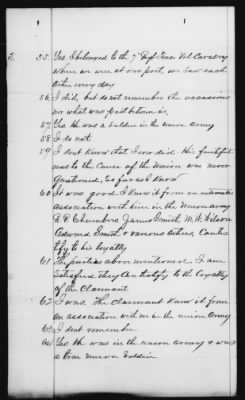 55. Yes. I belonged to the 7" Regt Tenn Vol Cavalry
when we were at one post, we saw each
other every day
56. I did, but do not remember the occasions
nor what past between us,
57. Yes He was a Soldier in the union army
58. I do not
59. I dont know that I ever did. His faithful
ness to the Cause of the Union was never
questioned, so far as I know
60. It was good. I know it from an intimate
association with him in the union army
James Smith M. H. Wilson
Edward Smith & various others, Can tes
tify to his loyalty
61. The parties above mentioned. I am
Satisfied they Can testify to the loyalty
of the Claimant
62. I was. The Claimant Knew it from
an association with me in the union Army
63. I dont remember
64. Yes He was in the union army & was
a true union Soldier